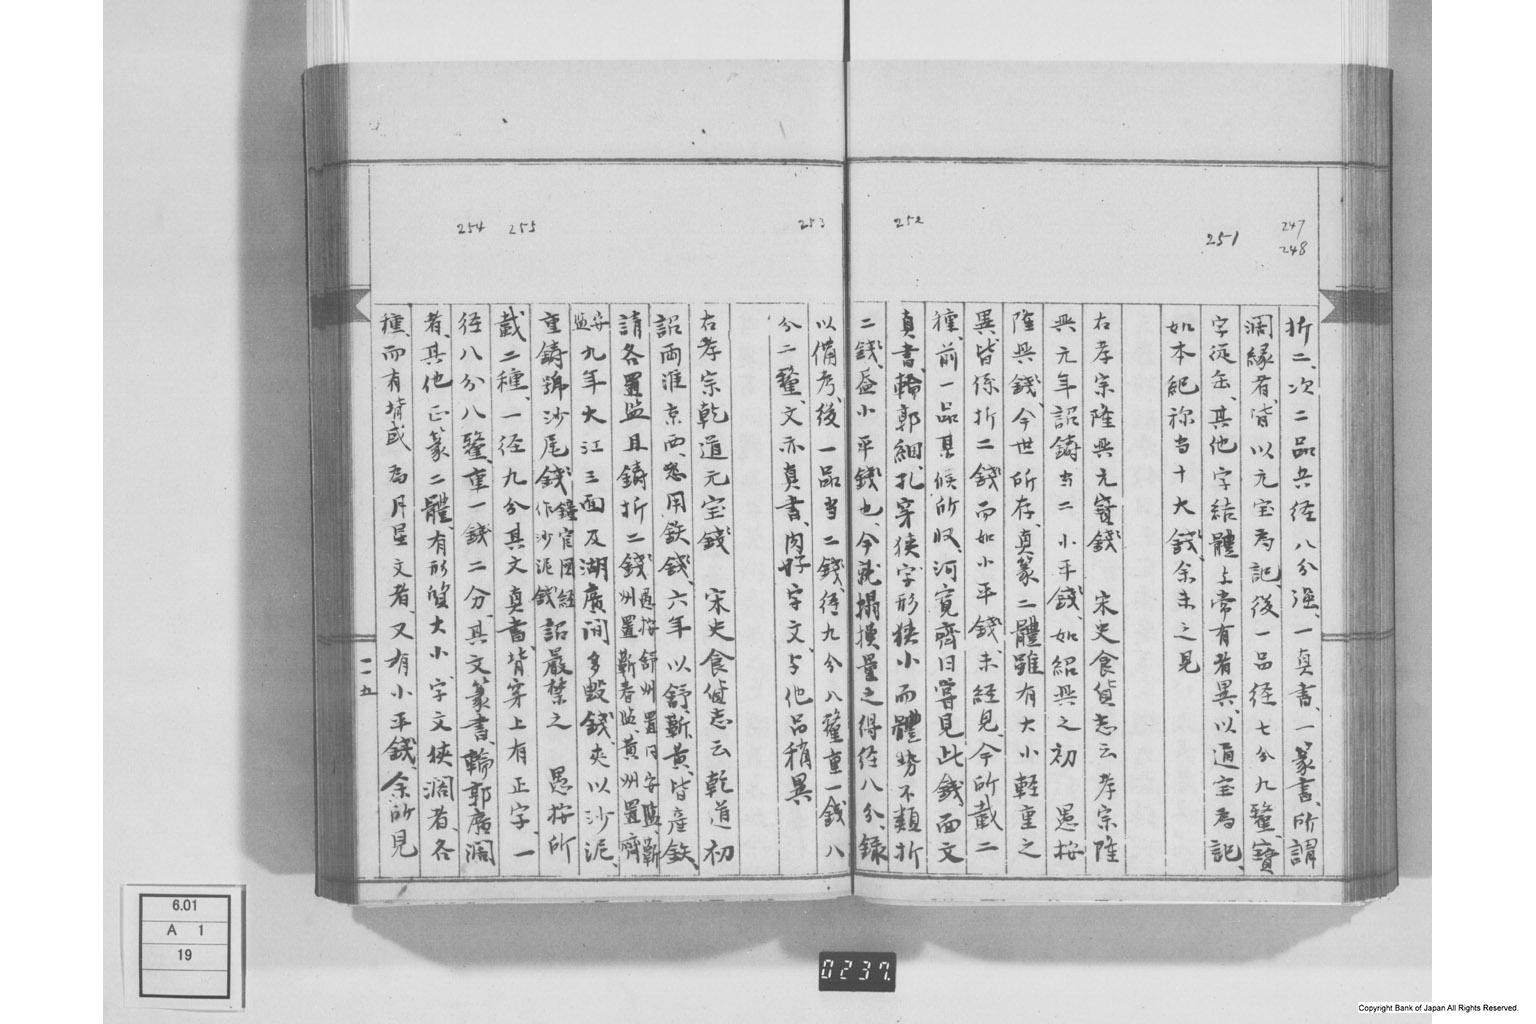 247
248
251
252
折二、次二品共径八分強、一真書、一篆書、所謂
濶縁者、皆以元宝為記、後一品径七分九釐、寶
字従缶、其他字結體与常有者異、以通宝為記、
如本紀称当十大銭、余未之見
右孝宗隆興元寳錢 宋史食貨志云孝宗隆
興元年詔鋳当二小平錢、如紹興之初 愚按
隆興錢、今世所存、真篆二體雖有大小軽重之
異、皆係折二錢而如小平錢、未経見、今所載二
種、前一品具候所収、河寛齋曰嘗見此錢、面文
真書、輪郭細、孔穿狭、字形狭小而體勢不類折
二錢、益小平錢也、今就搨摸量之得径八分、録
253
255
254
以備考、後一品当二錢、径九分八釐重一銭八
分二釐、文亦真書、肉好字文与他品稍異
右孝宗乾道元宝錢 宋史食貨志云乾道初
詔両淮京西、悉用鉄錢、六年以舒蘄黄、皆産鉄
請各置監且鋳折二錢 愚按舒州置同安監、蘄州置蘄春監、黄州置齊安監
九年大江三面及湖廣間多毀錢、夾以沙泥、
重鋳號沙尾錢 鐘官図経作沙泥錢 詔嚴禁之 愚按所
載二種、一径九分其文真書、背穿上有正字、一
径八分八釐、重一錢二分、其文篆書、輪郭廣濶
者、其他正篆二體、有形質大小、字文狭濶者、各
種、而有背或為月星文者、又有小平錢、余所見
二五
6.01
A 1
19
0237.
Copyright Bank of Japan All Rights Reserved.